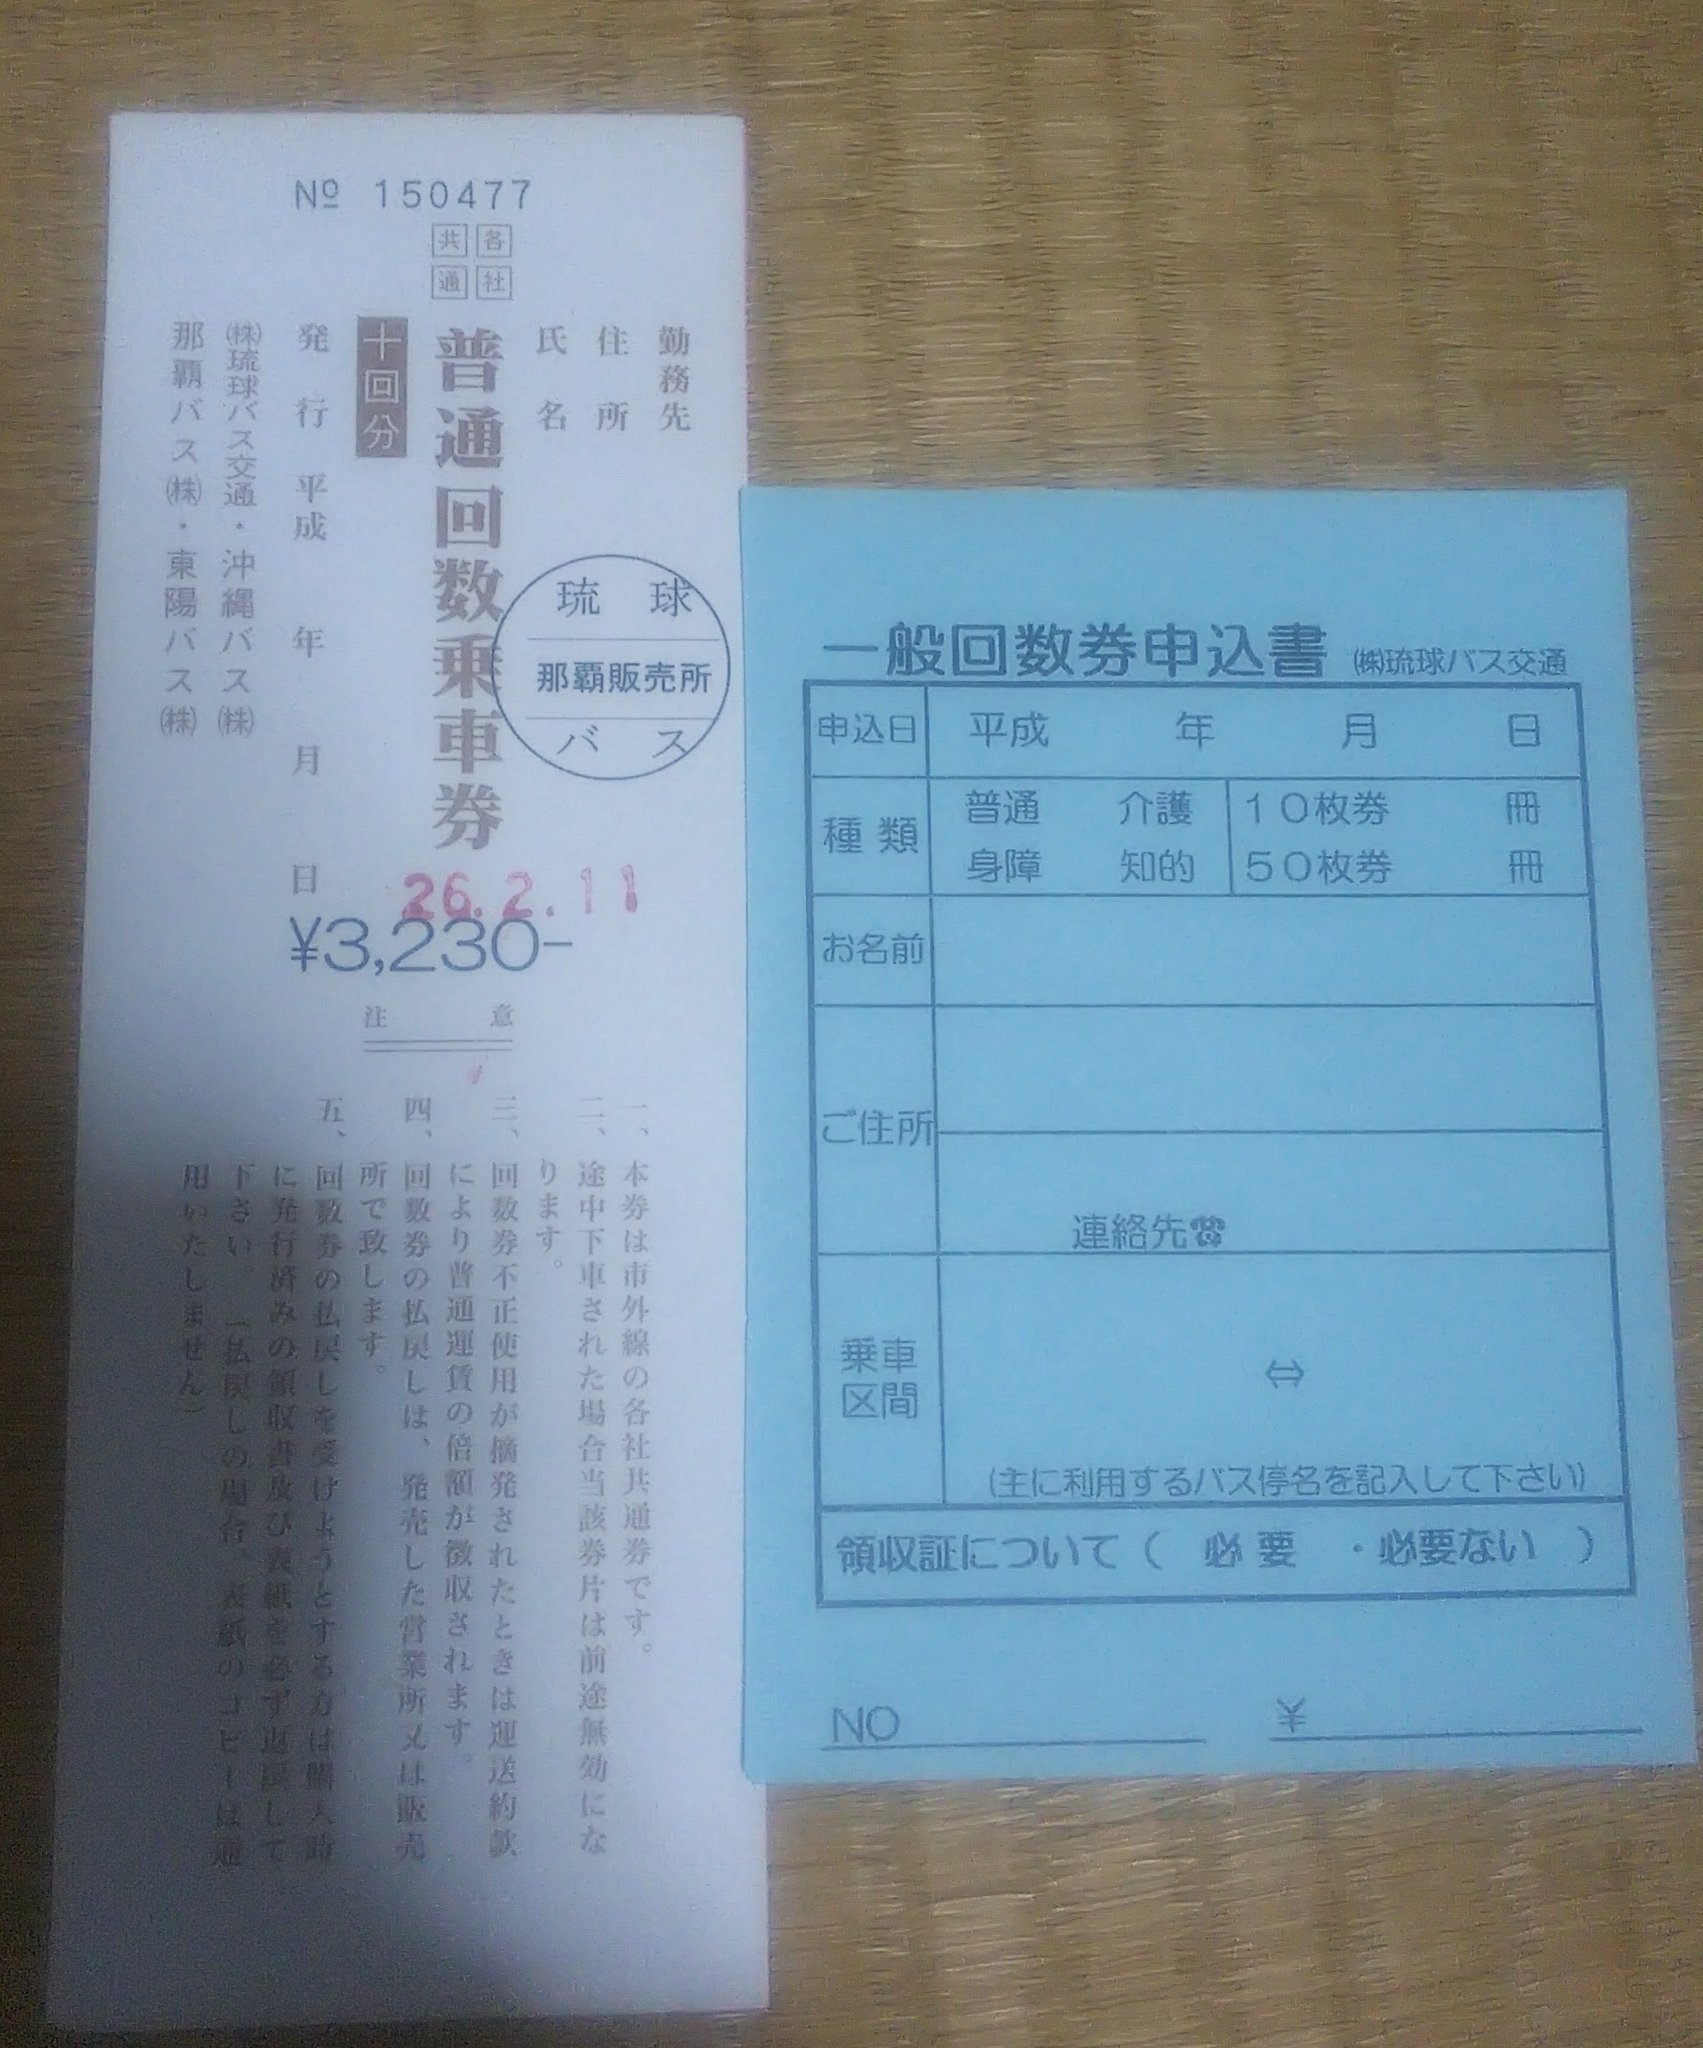 № 150477
各社
共通
勤務先
住所
氏名
普通回数乗車券
十回分
発行 平成 年 月 日
㈱琉球バス交通・沖縄バス㈱
那覇バス㈱・東陽バス㈱
琉球
那覇販売所
バス
26.2.11
¥3,230-
注意
一、本券は市外線の各社共通券です。
二、途中下車された場合当該券片は前途無効にな
ります。
三、回数券不正使用が摘発されたときは運送約款
により普通運賃の倍額が徴収されます。
四、回数券の払戻しは、発売した営業所又は販売
所で致します。
五、回数券の払戻しを受けようとする方は購入時
に発行済みの領収書及び表紙を必ず返戻して
下さい。(払戻しの場合、表紙のコピーは適
用いたしません)
一般回数券申込書 ㈱琉球バス交通
申込日 平成 年 月 日
種類 普通 介護 10枚券 冊
身障 知的 50枚券 冊
お名前
ご住所
連絡先☎
乗車
区間
⇔
(主に利用するバス停名を記入して下さい)
領収証について( 必要 ・必要ない )
NO ¥